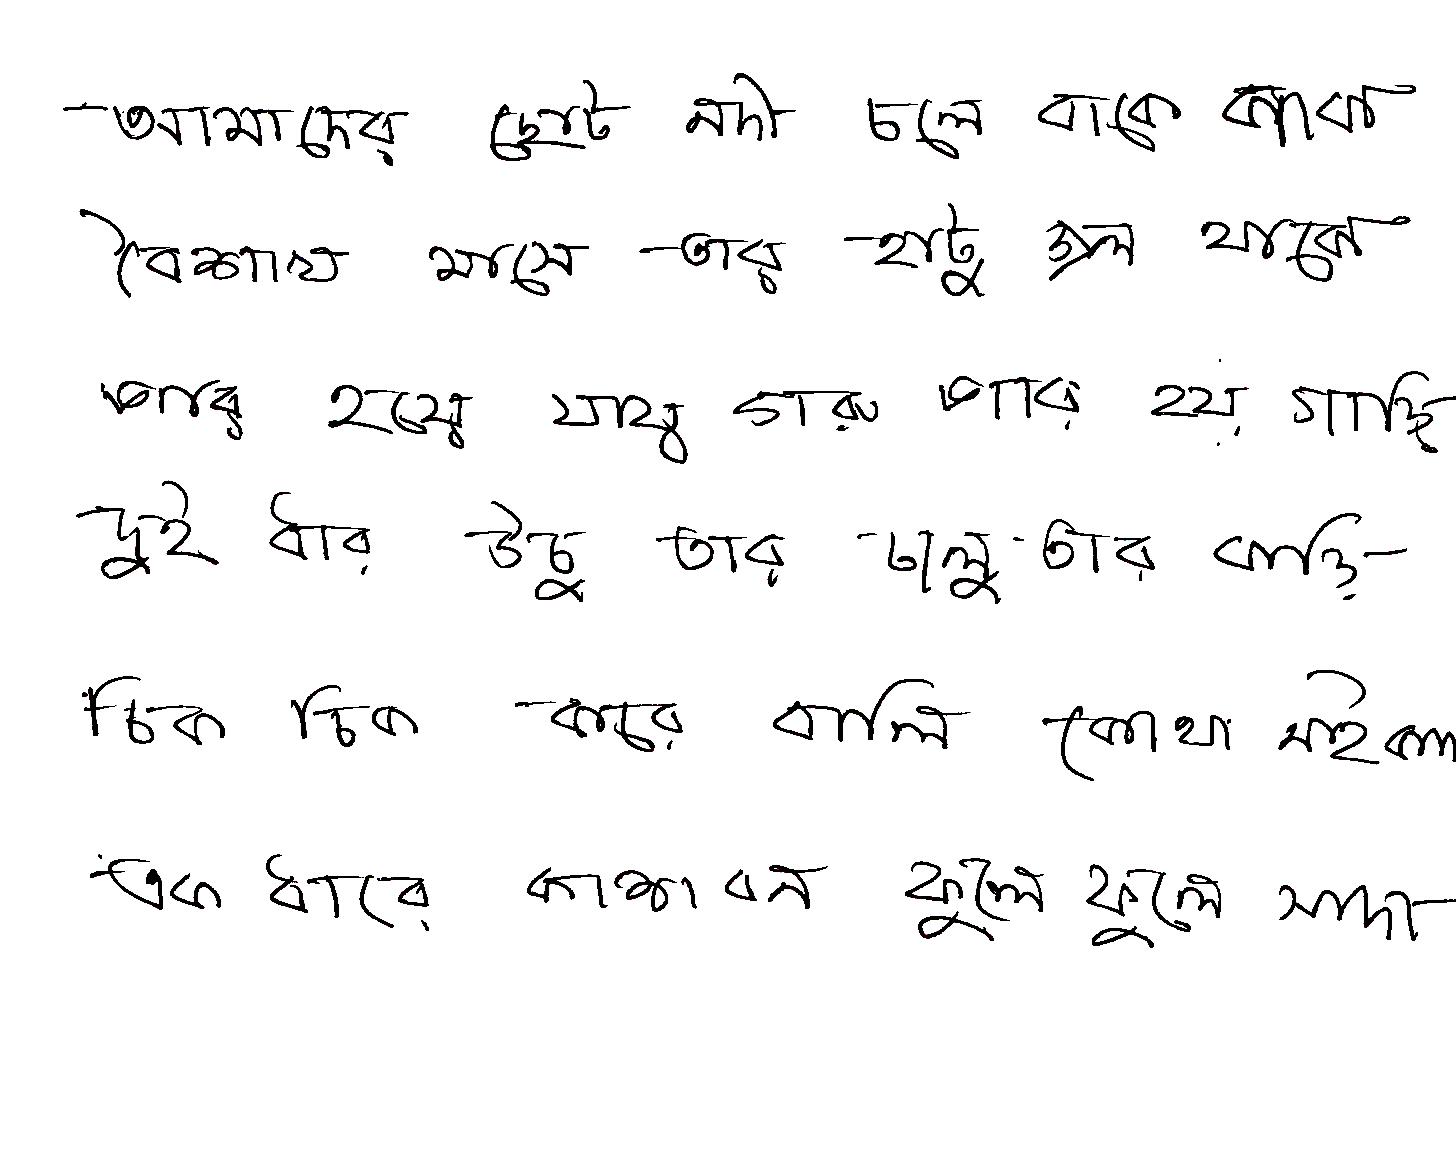 আমাদের ছোট নদী চলে বাকে বাকে
বৈশাখ মাসে তার হাটু জল থাকে
পার হয়ে যায় গরু পার হয় গাড়ি
দুই ধার উচু তার ঢালু তার পাড়ি
চিক চিক করে বালি কোথা নাইকাদা
এক ধারে কাশ বন ফুলে ফুলে সাদা